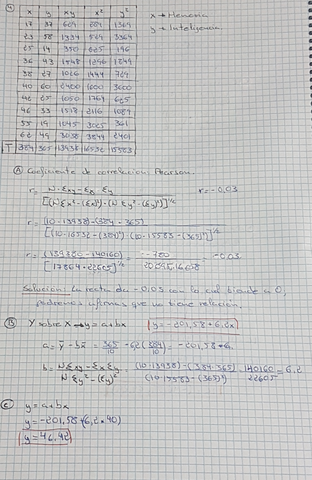 x y xy x² y²
17 37 629 289 1369
23 58 1334 529 3364
25 14 350 625 196
36 43 1548 1296 1849
38 27 1026 1444 729
40 60 2400 1600 3600
42 25 1050 1764 625
46 33 1518 2116 1089
55 19 1045 3025 361
62 49 3038 3844 2401
T 384 365 13938 16532 15583
x → Memoria
y → Inteligencia
Ⓐ Coeficiente de correlación Pearson.
r = N·Σxy - Σx Σy / [(N Σx² - (Σx)²)·(N Σy² - (Σy)²)]^1/2
r = -0.03
r = (10·13938)-(384·365) / [(10·16532-(384)²)·(10·15583-(365)²)]^1/2
r = (139380-140160) / [17864·22605]^1/2 = -780 / = -0.03
Solución: La recta da -0,03 con lo cual tiende a 0,
podremos afirmar que no tiene relación.
Ⓑ Y sobre X → y = a+bx
y = -201,58+6,2x
a = ȳ - bx̄ = 365/10 - 6,2 (384/10) = -201,58
b = N Σxy - Σx Σy / N Σy² - (Σy)² = (10·13938) - (384·365) / (10·15583-(365)²) = 140160 / 22605 = 6,2
Ⓒ y = a+bx
y = -201,58+(6,2·40)
y = 46,42